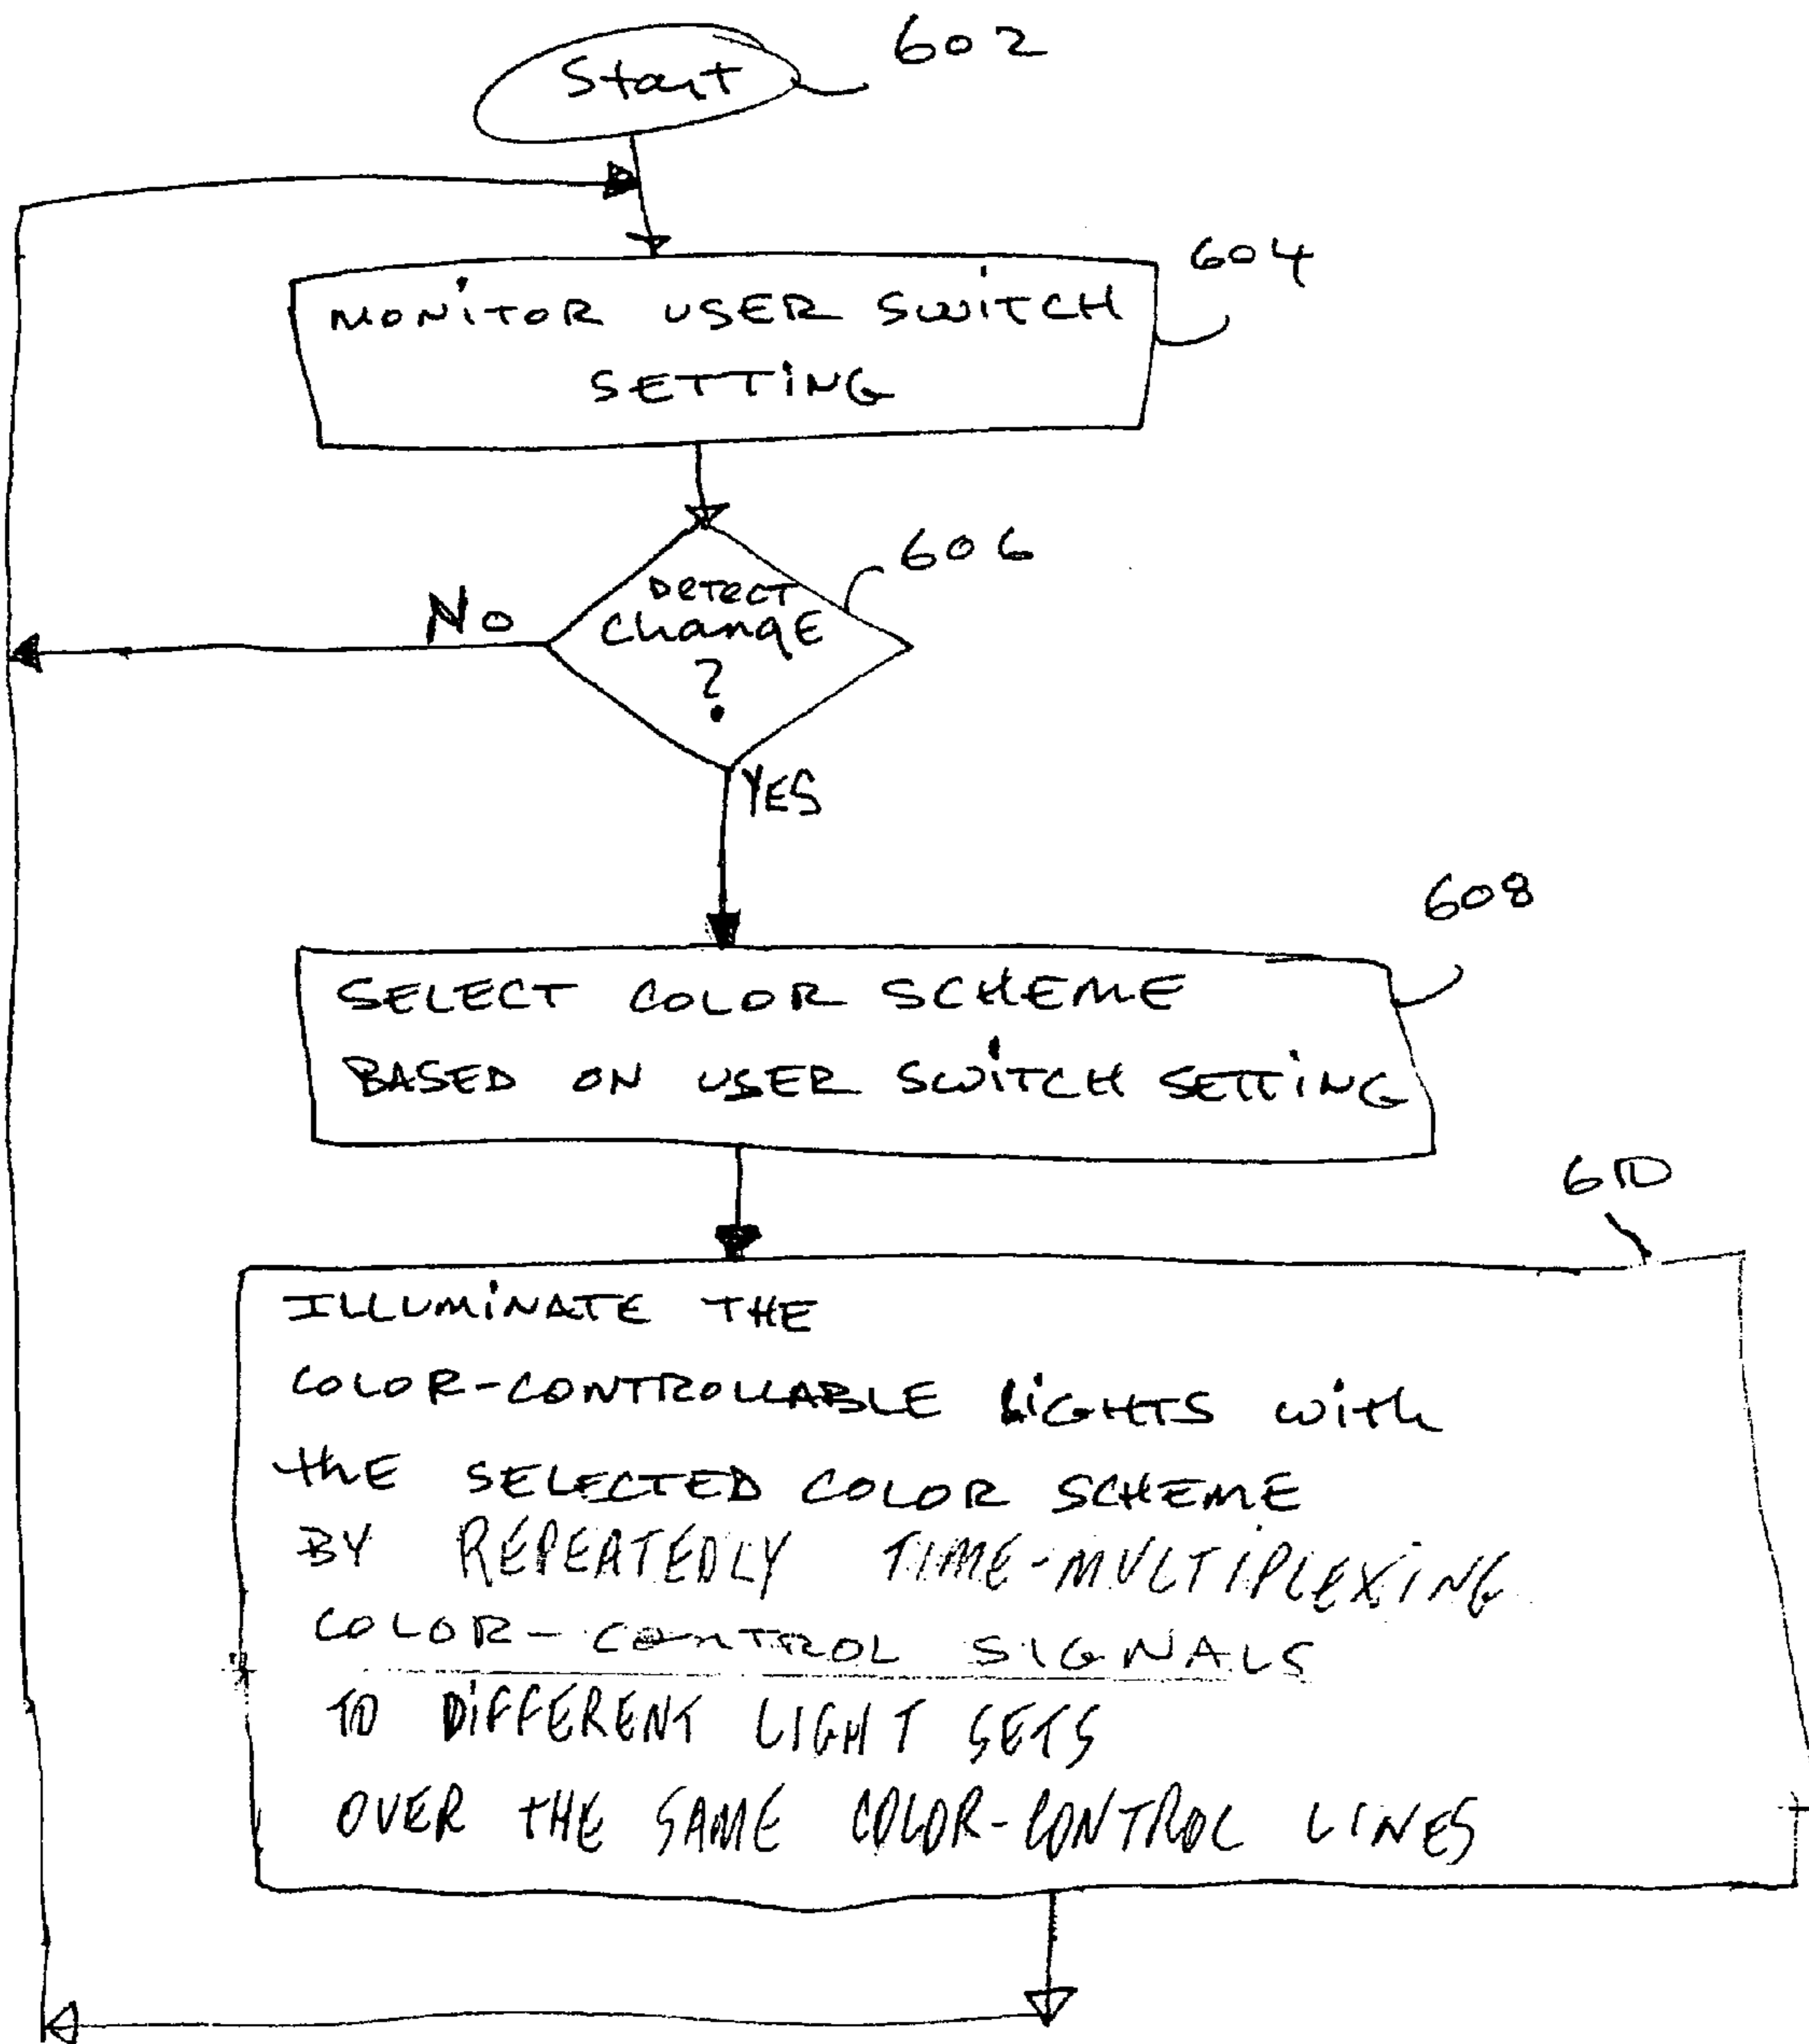 Start
602
604
MONITOR USER SWITCH
SETTING
606
DETECT
ChangE
?
No
YES
608
SELECT COLOR SCHEME
BASED ON USER SWITCH SETTING
610
ILLUMINATE THE
COLOR-CONTROLLABLE LIGHTS with
thE SELECTED COLOR SCHEME
BY REPEATEDLY TIME-MULTIPLEXING
COLOR-CONTROL SIGNALS
TO DIFFERENT LIGHT SETS
OVER THE SAME COLOR-CONTROL LINES